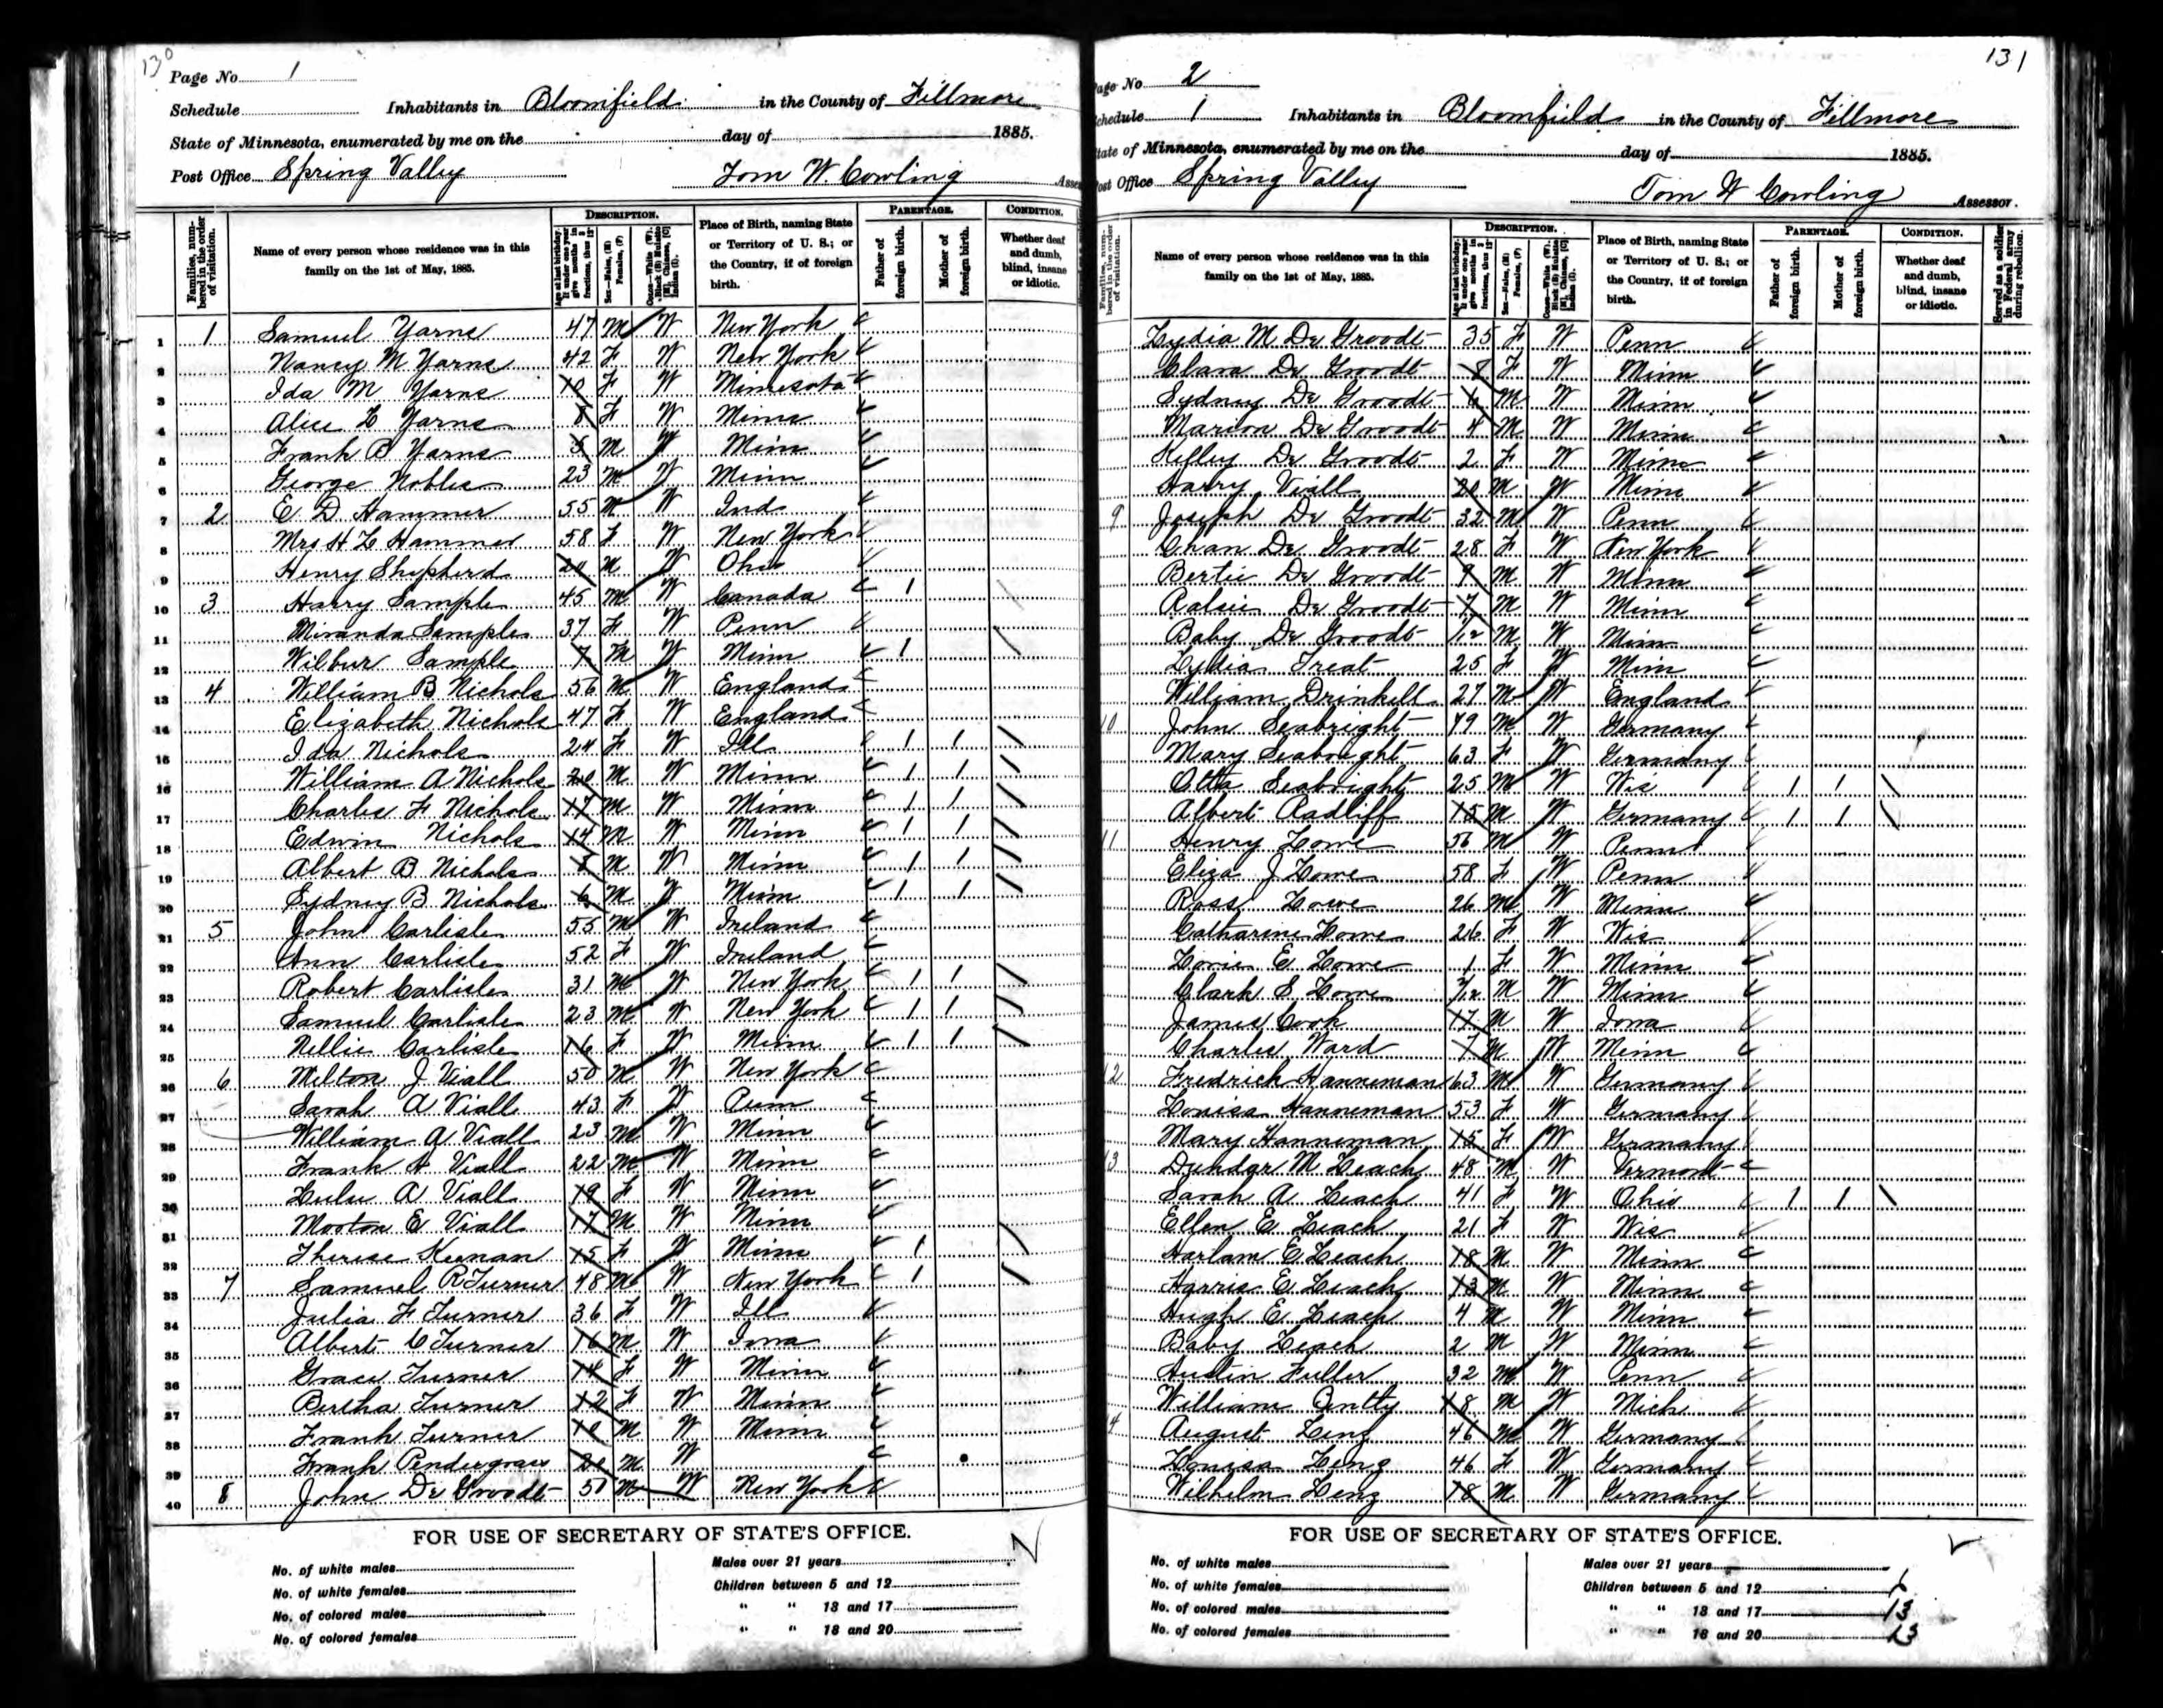 130
Page No 1
Schedule Inhabitants in Bloomfield in the County of Fillmore
State of Minnesota, enumerated by me on the day of 1885.
Post Office Spring Valley Tom W. Cowling
Families, numbered in the order of visitation.
Name of every person whose residence was in this family on the 1st of May, 1885.
DESCRIPTION.
Place of Birth, naming State or Territory of U. S.; or the Country, if of foreign birth.
PARENTAGE.
Father of foreign birth.
Mother of foreign birth.
CONDITION.
Whether deaf and dumb, blind, insane or idiotic.
1 1 Samuel Yarns 47 M W New York
2 Nancy M Yarns 42 F W New York
3 Ida M Yarns 10 F W Minnesota
4 Alice L Yarns 8 F W Minn
5 Frank B Yarns 5 M W Minn
6 George Nobles 23 M W Minn
7 2 E D Hammer 55 M W Ind
8 Mrs H L Hammer 58 F W New York
9 Henry Shepherd 20 M W Ohio
10 3 Harry Sample 45 M W Canada 1
11 Miranda Sample 37 F W Penn
12 Wilbur Sample 7 M W Minn 1
13 4 William B Nichols 56 M W England
14 Elizabeth Nichols 47 F W England
15 Ida Nichols 24 F W Ill 1 1
16 William A Nichols 20 M W Minn 1 1
17 Charles F Nichols 17 M W Minn 1 1
18 Edwin Nichols 14 M W Minn 1 1
19 Albert B Nichols 8 M W Minn 1 1
20 Sydney B Nichols 6 M W Minn 1 1
21 5 John Carlisle 55 M W Ireland
22 Ann Carlisle 52 F W Ireland
23 Robert Carlisle 31 M W New York 1 1
24 Samuel Carlisle 23 M W New York 1 1
25 Nellie Carlisle 16 F W Minn 1 1
26 6 Milton J Viall 50 M W New York
27 Sarah A Viall 43 F W Penn
28 William A Viall 23 M W Minn
29 Frank H Viall 22 M W Minn
30 Lulu A Viall 19 F W Minn
31 Morton E Viall 17 M W Minn
32 Therese Keenan 15 F W Minn 1
33 7 Samuel R Turner 48 M W New York 1
34 Julia F Turner 36 F W Ill
35 Albert C Turner 16 M W Iowa
36 Grace Turner 14 F W Minn
37 Bertha Turner 12 F W Minn
38 Frank Turner 10 M W Minn
39 Frank Pendergrass 20 M W
40 8 John De Groodt 51 M W New York
FOR USE OF SECRETARY OF STATE'S OFFICE.
No. of white males
No. of white females
No. of colored males
No. of colored females
Males over 21 years
Children between 5 and 12
" " 13 and 17
" " 18 and 20
131
Page No 2
Schedule 1 Inhabitants in Bloomfield in the County of Fillmore
State of Minnesota, enumerated by me on the day of 1885.
Post Office Spring Valley Tom W Cowling Assessor.
Name of every person whose residence was in this family on the 1st of May, 1885.
DESCRIPTION.
Place of Birth, naming State or Territory of U. S.; or the Country, if of foreign birth.
PARENTAGE.
Father of foreign birth.
Mother of foreign birth.
CONDITION.
Whether deaf and dumb, blind, insane or idiotic.
Served as a soldier in Federal army during rebellion.
Lydia M De Groodt 35 F W Penn
Clara De Groodt 8 F W Minn
Sydney De Groodt 6 M W Minn
Marion De Groodt 4 M W Minn
Kelley De Groodt 2 F W Minn
Harry Viall 20 M W Minn
9 Joseph De Groodt 32 M W Penn
Chan De Groodt 28 F W New York
Bertie De Groodt 9 M W Minn
Ralsie De Groodt 7 M W Minn
Baby De Groodt 1/12 M W Minn
Lydia Treat 25 F W Minn
William Drinkell 27 M W England
10 John Seabright 79 M W Germany
Mary Seabright 63 F W Germany
Otto Seabright 25 M W Wis 1 1
Albert Radliff 15 M W Germany 1 1
11 Henry Lowe 56 M W Penn
Eliza J Lowe 58 F W Penn
Ross Lowe 26 M W Minn
Catharine Lowe 26 F W Wis
E Lowe 1 F W Minn
Clark S Lowe M W Minn
James Cook 17 M W Iowa
Charles Ward 7 M W Minn
12 Fredrick Hanneman 63 M W Germany
Louisa Hanneman 53 F W Germany
Mary Hanneman 15 F W Germany
13 M Leach 48 M W Vermont
Sarah A Leach 41 F W Ohio 1 1
Ellen E Leach 21 F W Wis
Harlam E Leach 18 M W Minn
Harris E Leach 13 M W Minn
Hugh E Leach 4 M W Minn
Baby Leach 2 M W Minn
Austin Fuller 32 M W Penn
William 18 M W Mich
14 August Lenz 46 M W Germany
Louisa Lenz 46 F W Germany
Wilhelm Lenz 18 M W Germany
FOR USE OF SECRETARY OF STATE'S OFFICE.
No. of white males
No. of white females
No. of colored males
No. of colored females
Males over 21 years
Children between 5 and 12 6
" " 13 and 17 13
" " 18 and 20 13